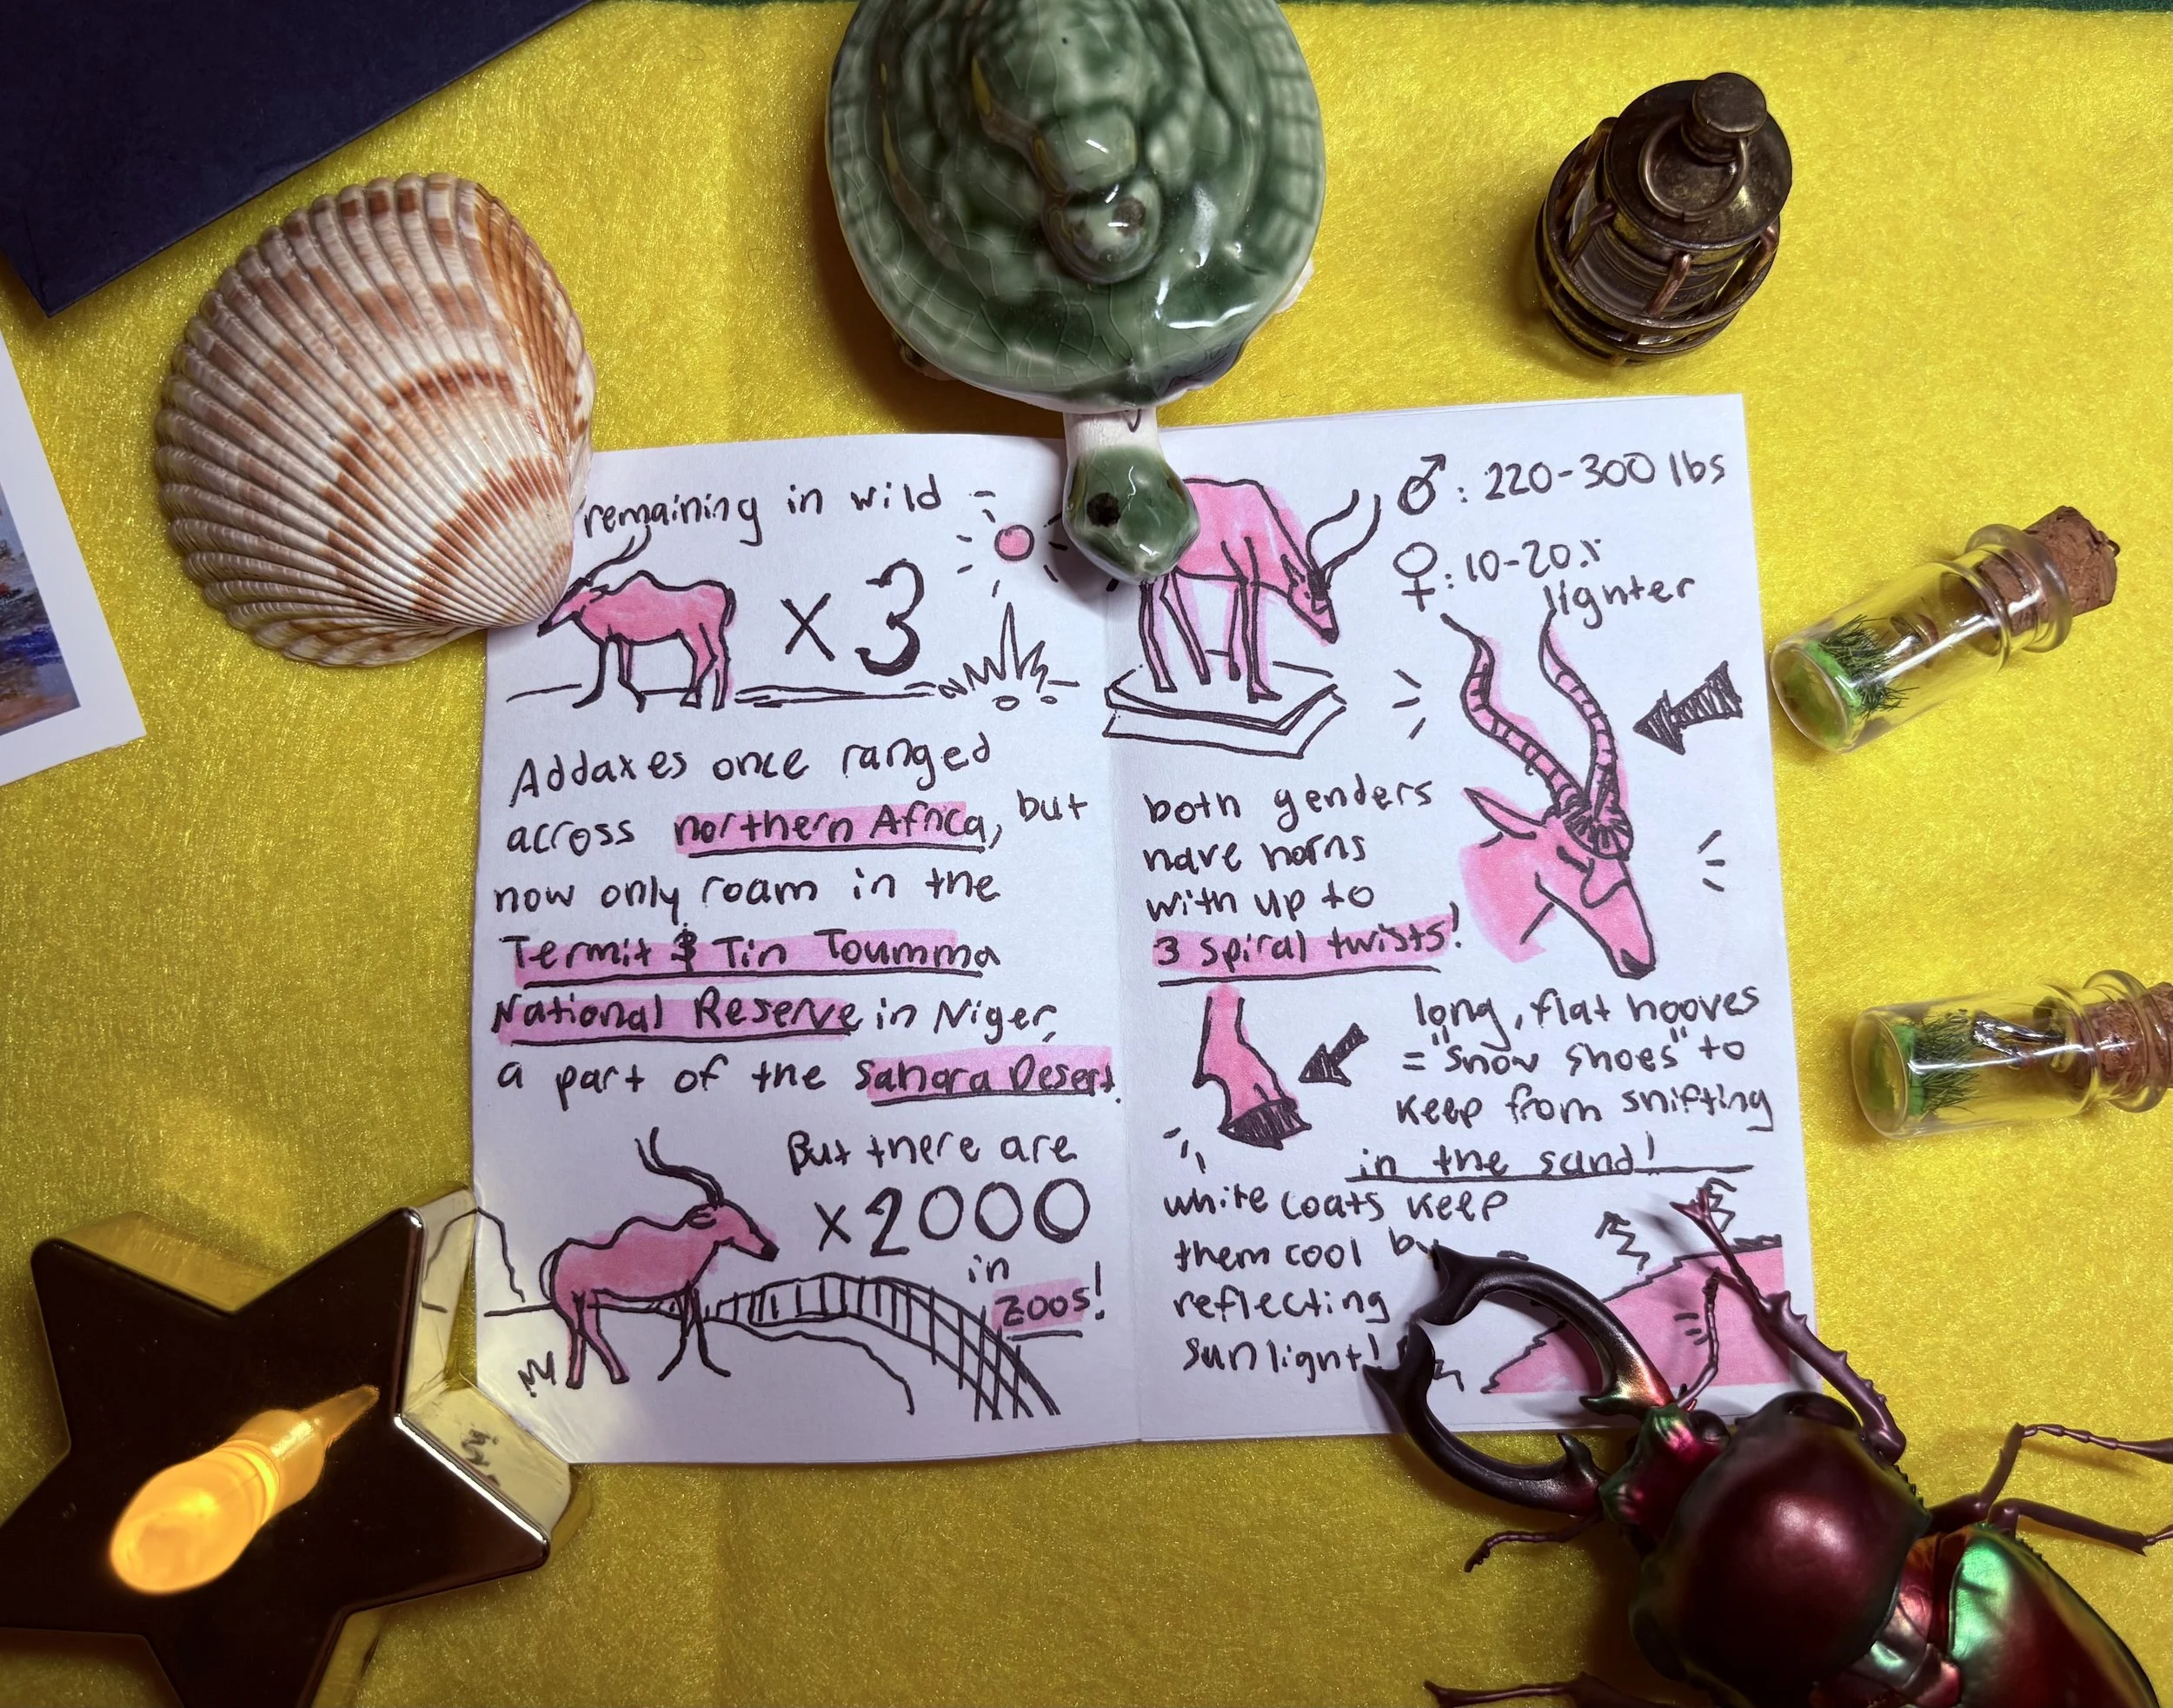 remaining in wild
x 3
Addaxes once ranged
across northern Africa, but
now only roam in the
Termit & Tin Toumma
National Reserve in Niger,
a part of the Sahara Desert.
But there are
x 2000
in
zoos!
♂: 220-300 lbs
♀: 10-20%
lighter
both genders
have horns
with up to
3 spiral twists!
long, flat hooves
= "snow shoes" to
keep from shifting
in the sand!
white coats keep
them cool by
reflecting
sunlight!